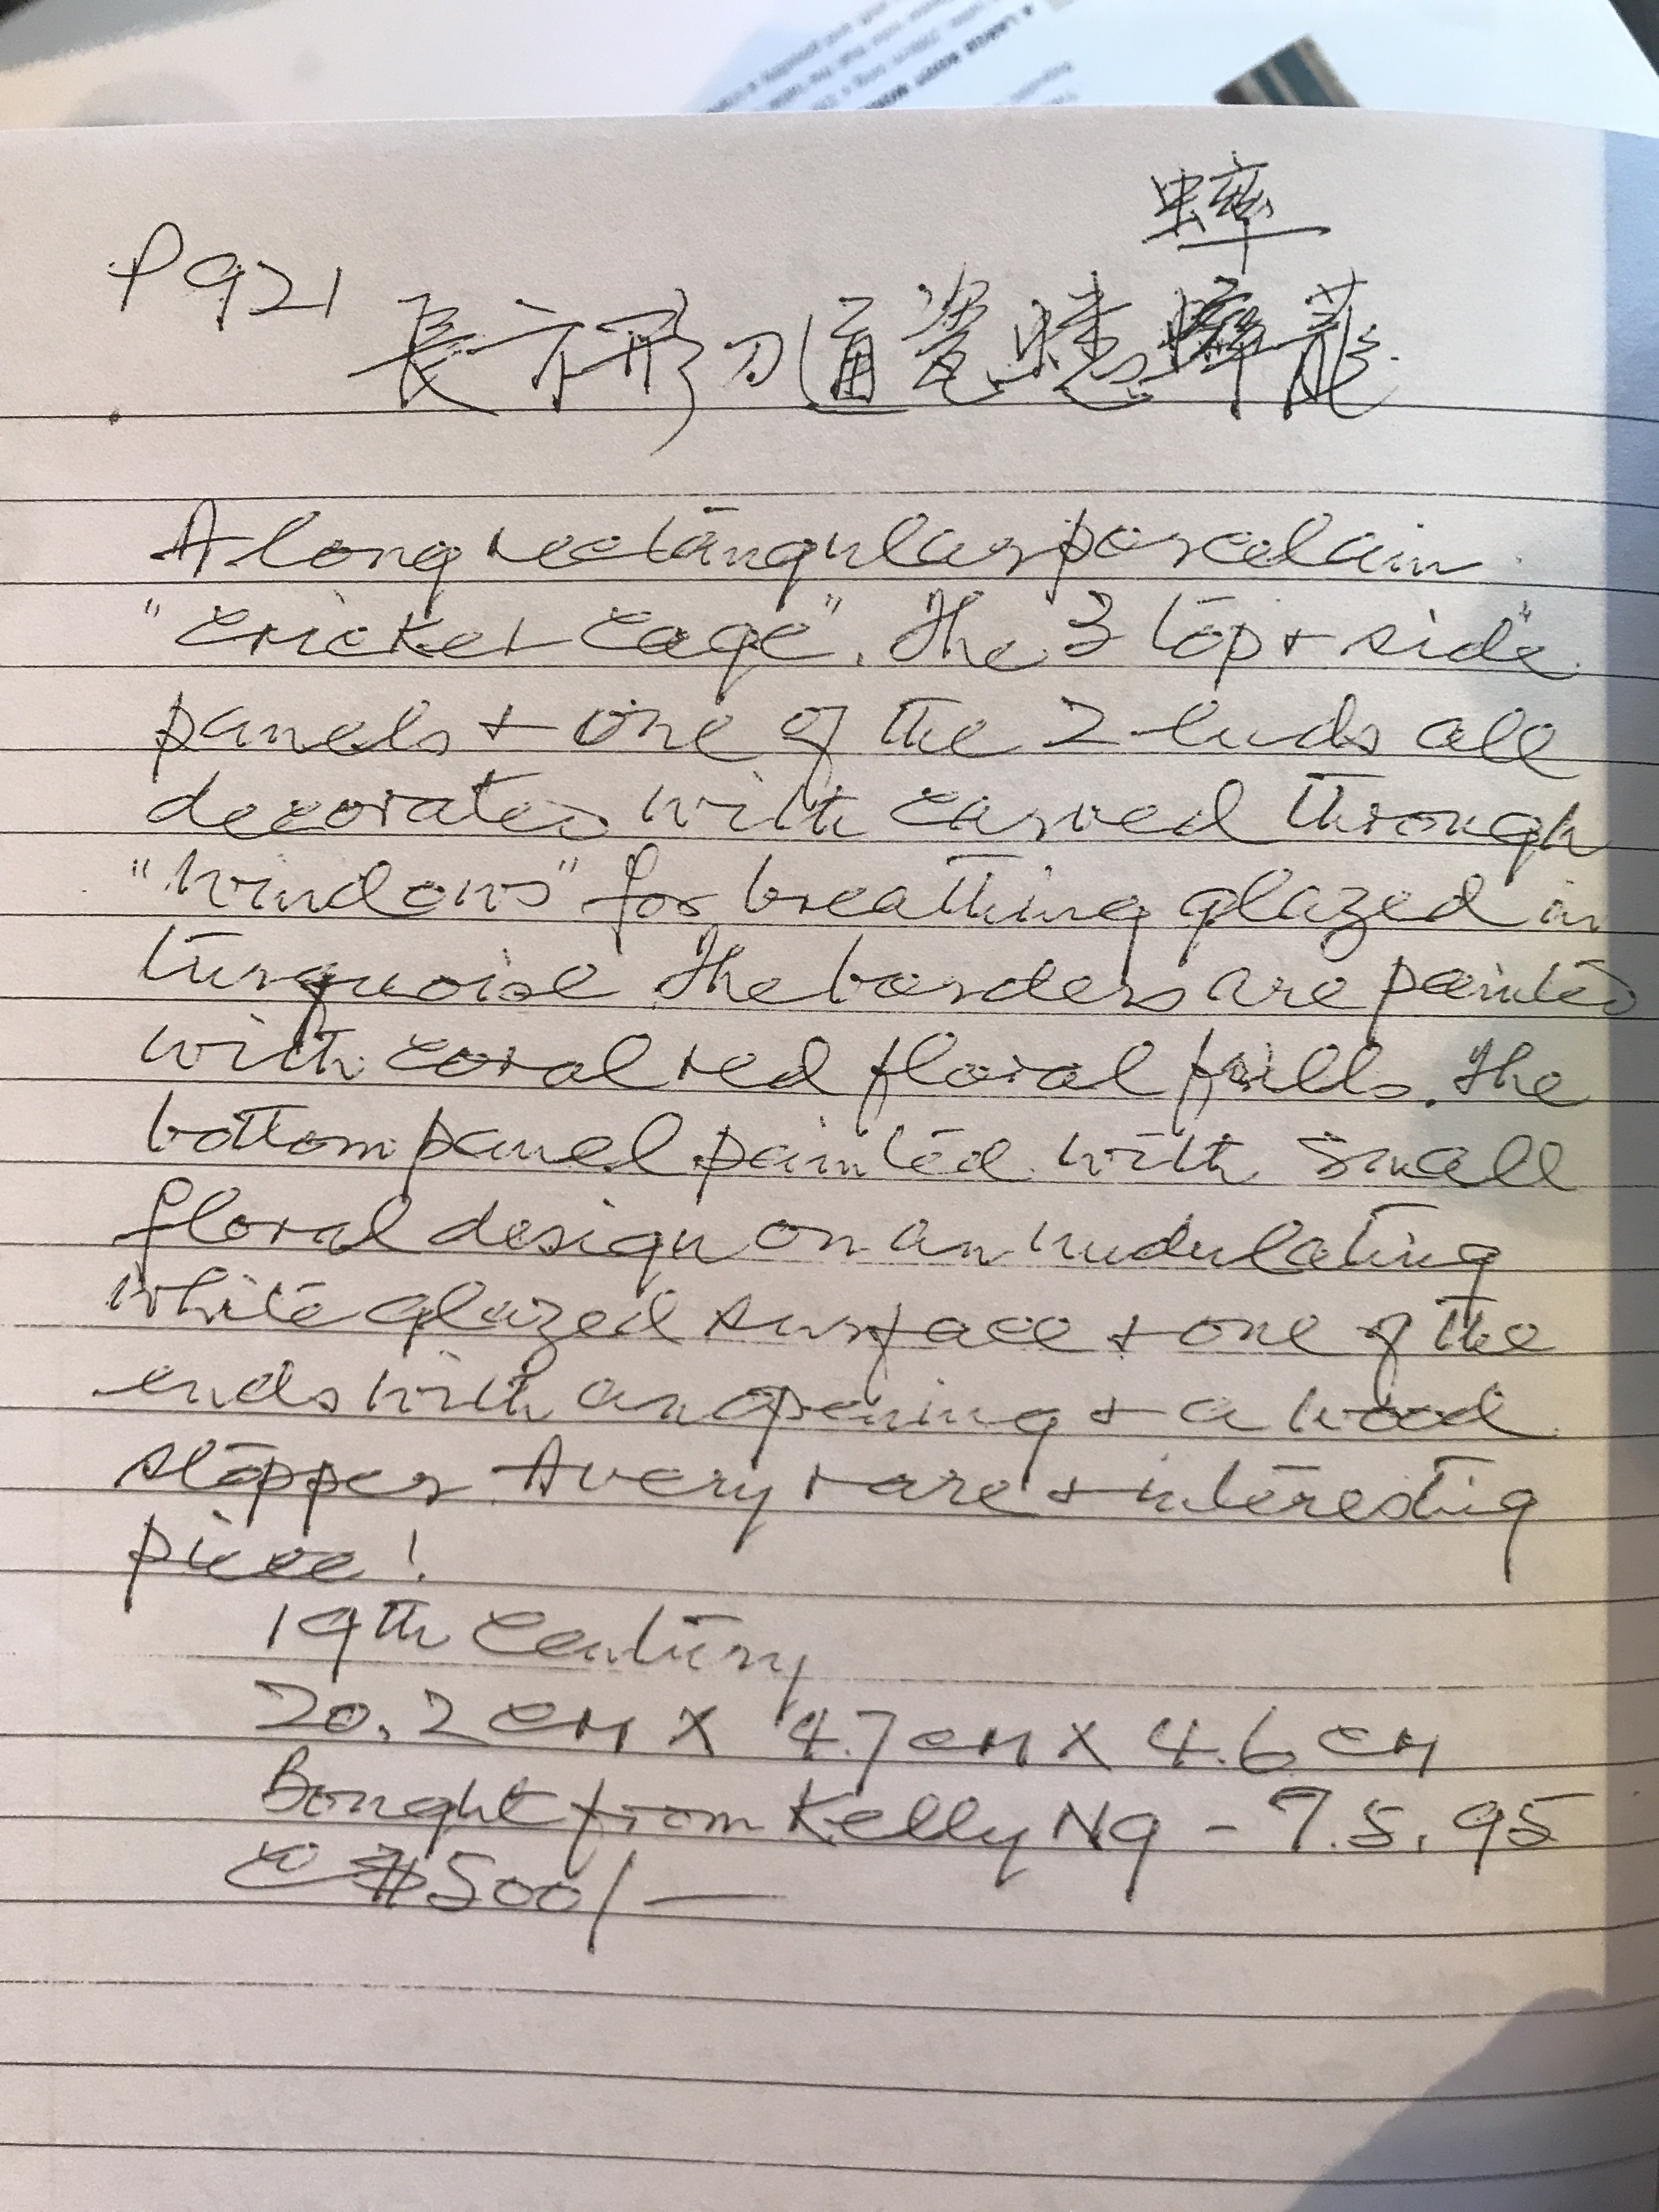 蟀
P921 長方形刀通瓷蟋蟀蘢
A long rectangular porcelain
"cricket cage". The "3 top + side"
panels + one of the 2 ends all
decorated with carved through
"windows" for breathing glazed in
turquoise. The borders are painted
with coral red floral frills. The
bottom panel painted with small
floral design on an undulating
white glazed surface + one of the
ends with an opening + a wood
stopper. A very rare + interesting
piece!
19th Century
20.2 cm x 4.7 cm x 4.6 cm
Bought from Kelly Ng - 7.5.95
@ $500/—